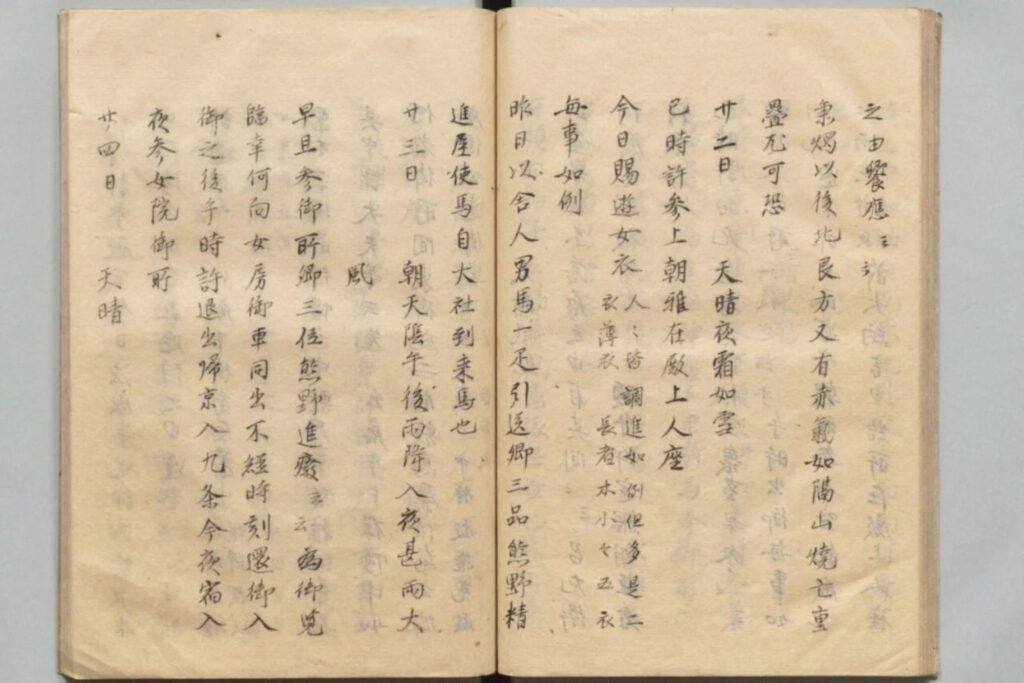 之由饗應云々
秉燭以後北艮方又有赤氣如隔山燒亡重
疊尤可恐
廿二日　天晴夜霜如雪
巳時許参上朝雅在殿上人座
今日賜遊女衣人〻皆調進如例但多是二
衣薄衣　長者木小〻五衣
每事如例
昨日以舎人男馬一疋引送卿三品熊野精
進屋使馬自大社到来馬也
廿三日　朝天陰午後雨降入夜甚雨大
風
早旦参御所卿三位熊野進發云云為御覧
臨幸何向女房御車同出不經時刻還御入
御之後午時許退出歸京入九条今夜宿入
夜参女院御所
廿四日　天晴